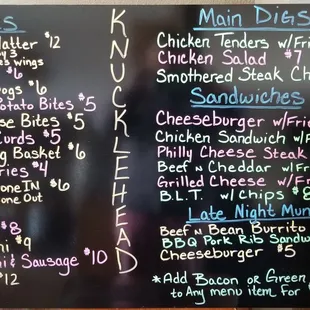 latter $12
wings
$6
ogs $6
otato Bites $5
se Bites $5
urds $5
g Basket $6
ries $4
one IN $6
one Out
$8
ni $9
i & Sausage $10
$12
KNUCKLEHEAD
Main Digs
Chicken Tenders w/Fri
Chicken Salad $7
Smothered Steak Ch
Sandwiches
Cheeseburger w/Frie
Chicken Sandwich w/F
Philly Cheese Steak
Beef n Cheddar w/Fri
Grilled Cheese w/Frie
B.L.T. w/Chips $8
Late Night Mun
Beef n Bean Burrito
BBQ Pork Rib Sandw
Cheeseburger $5
*Add Bacon or Green
to Any menu item For